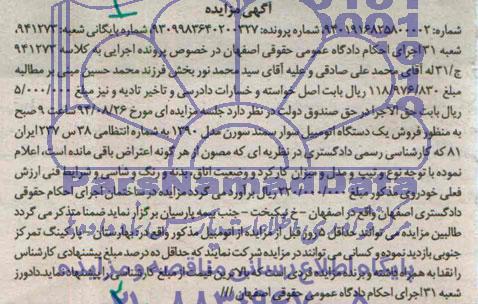 آگهی مزایده
شماره: ۹۳۰۱۹۱۶۸۲۵۸۰۰۰۰۲ شماره پرونده: ۹۳۰۹۹۸۳۶۴۰۲۰۰۳۲۷ شماره بایگانی شعبه: ۹۴۱۲۷۳
شعبه ۳۱ اجرای احکام دادگاه عمومی حقوقی اصفهان در خصوص پرونده اجرایی به کلاسه ۹۴۱۲۷۳
ج/۳۱ له آقای محمد علی صادقی و علیه آقای سید محمد نور بخش فرزند محمد حسین مبنی بر مطالبه
مبلغ ۱۱۸/۹۷۶/۸۳۰ ریال بابت اصل خواسته و خسارات دادرسی و تاخیر تادیه و نیز مبلغ ۵/۰۰۰/۰۰۰
ریال بابت حق الاجرا در حق صندوق دولت در نظر دارد جلسه مزایده ای مورخ ۹۴/۰۸/۲۶ ساعت ۹ صبح
به منظور فروش یک دستگاه اتومبیل سوار سمند سورن مدل ۱۳۹۰ به شماره انتظامی ۳۸ س ۲۳۷ ایران
۸۱ که کارشناسی رسمی دادگستری در نظریه ای که مصون از هر گونه اعتراض باقی مانده است، اعلام
نموده با توجه نوع و تیپ و مدل و میزان کارکرد و وضعیت اتاق، بدنه و رنگ و شاسی و شرایط فنی ارزش
فعلی خودروی متذکر مبلغ ریال برآورد می گردد مزایده در ساختمان اجرای احکام حقوقی
دادگستری اصفهان واقع در اصفهان - خ نیکبخت - جنب بیمه پارسیان برگزار نماید ضمنا متذکر می گردد
طالبین مزایده می توانند حداقل روز قبل از مزایده از اتومبیل مذکور واقع در بهارستان - پارکینگ تمرکز
جنوبی بازدید نموده و کسانی می توانند در مزایده شرکت نمایند که حداقل ده درصد مبلغ پیشنهادی کارشناس
را نقدا به همراه داشته باشند برنده مزایده فردی است که بالاترین قیمت از مبلغ کارشناسی را پیشنهاد نماید. دادورز
شعبه ۳۱ اجرای احکام دادگاه عمومی حقوقی اصفهان ///